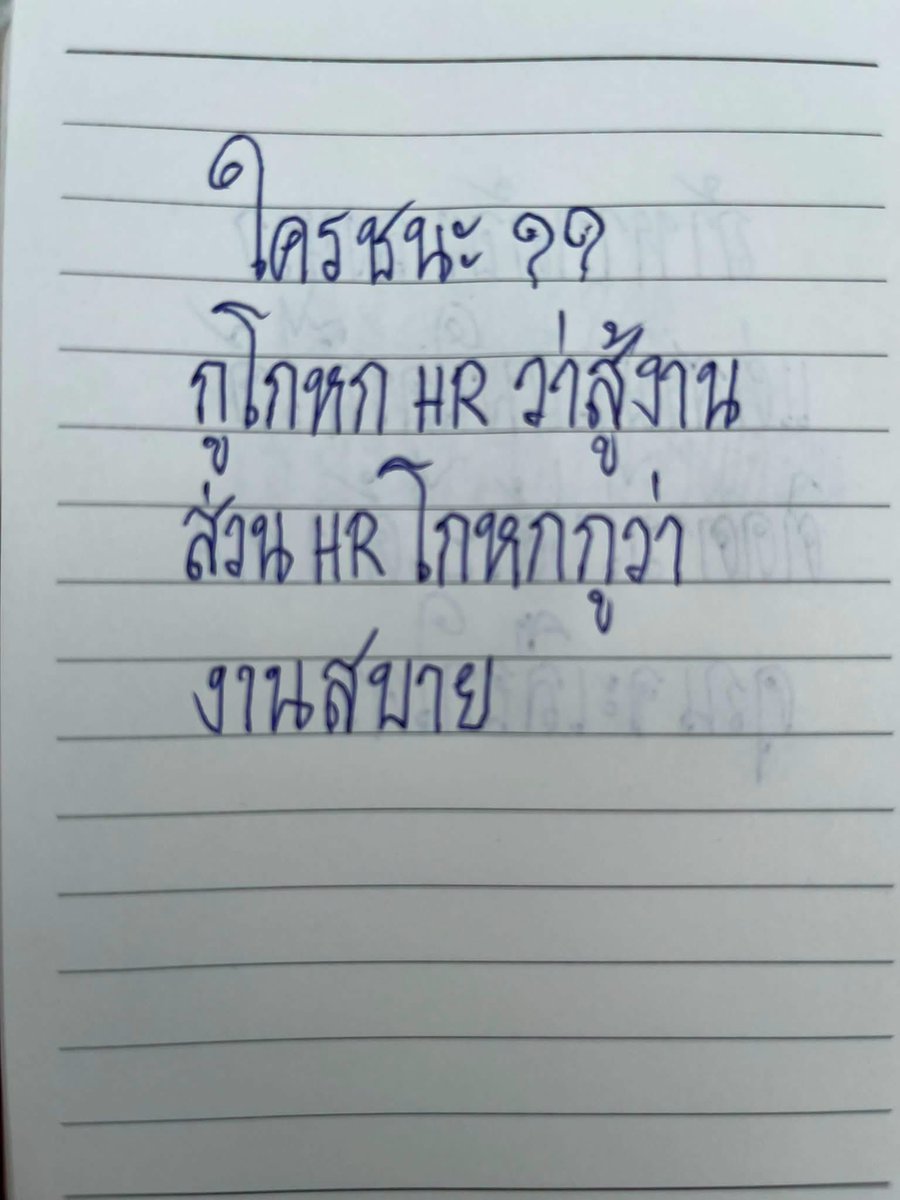 ใครชนะ ??
กูโกหก HR ว่าสู้งาน
ส่วน HR โกหกกูว่า
งานสบาย